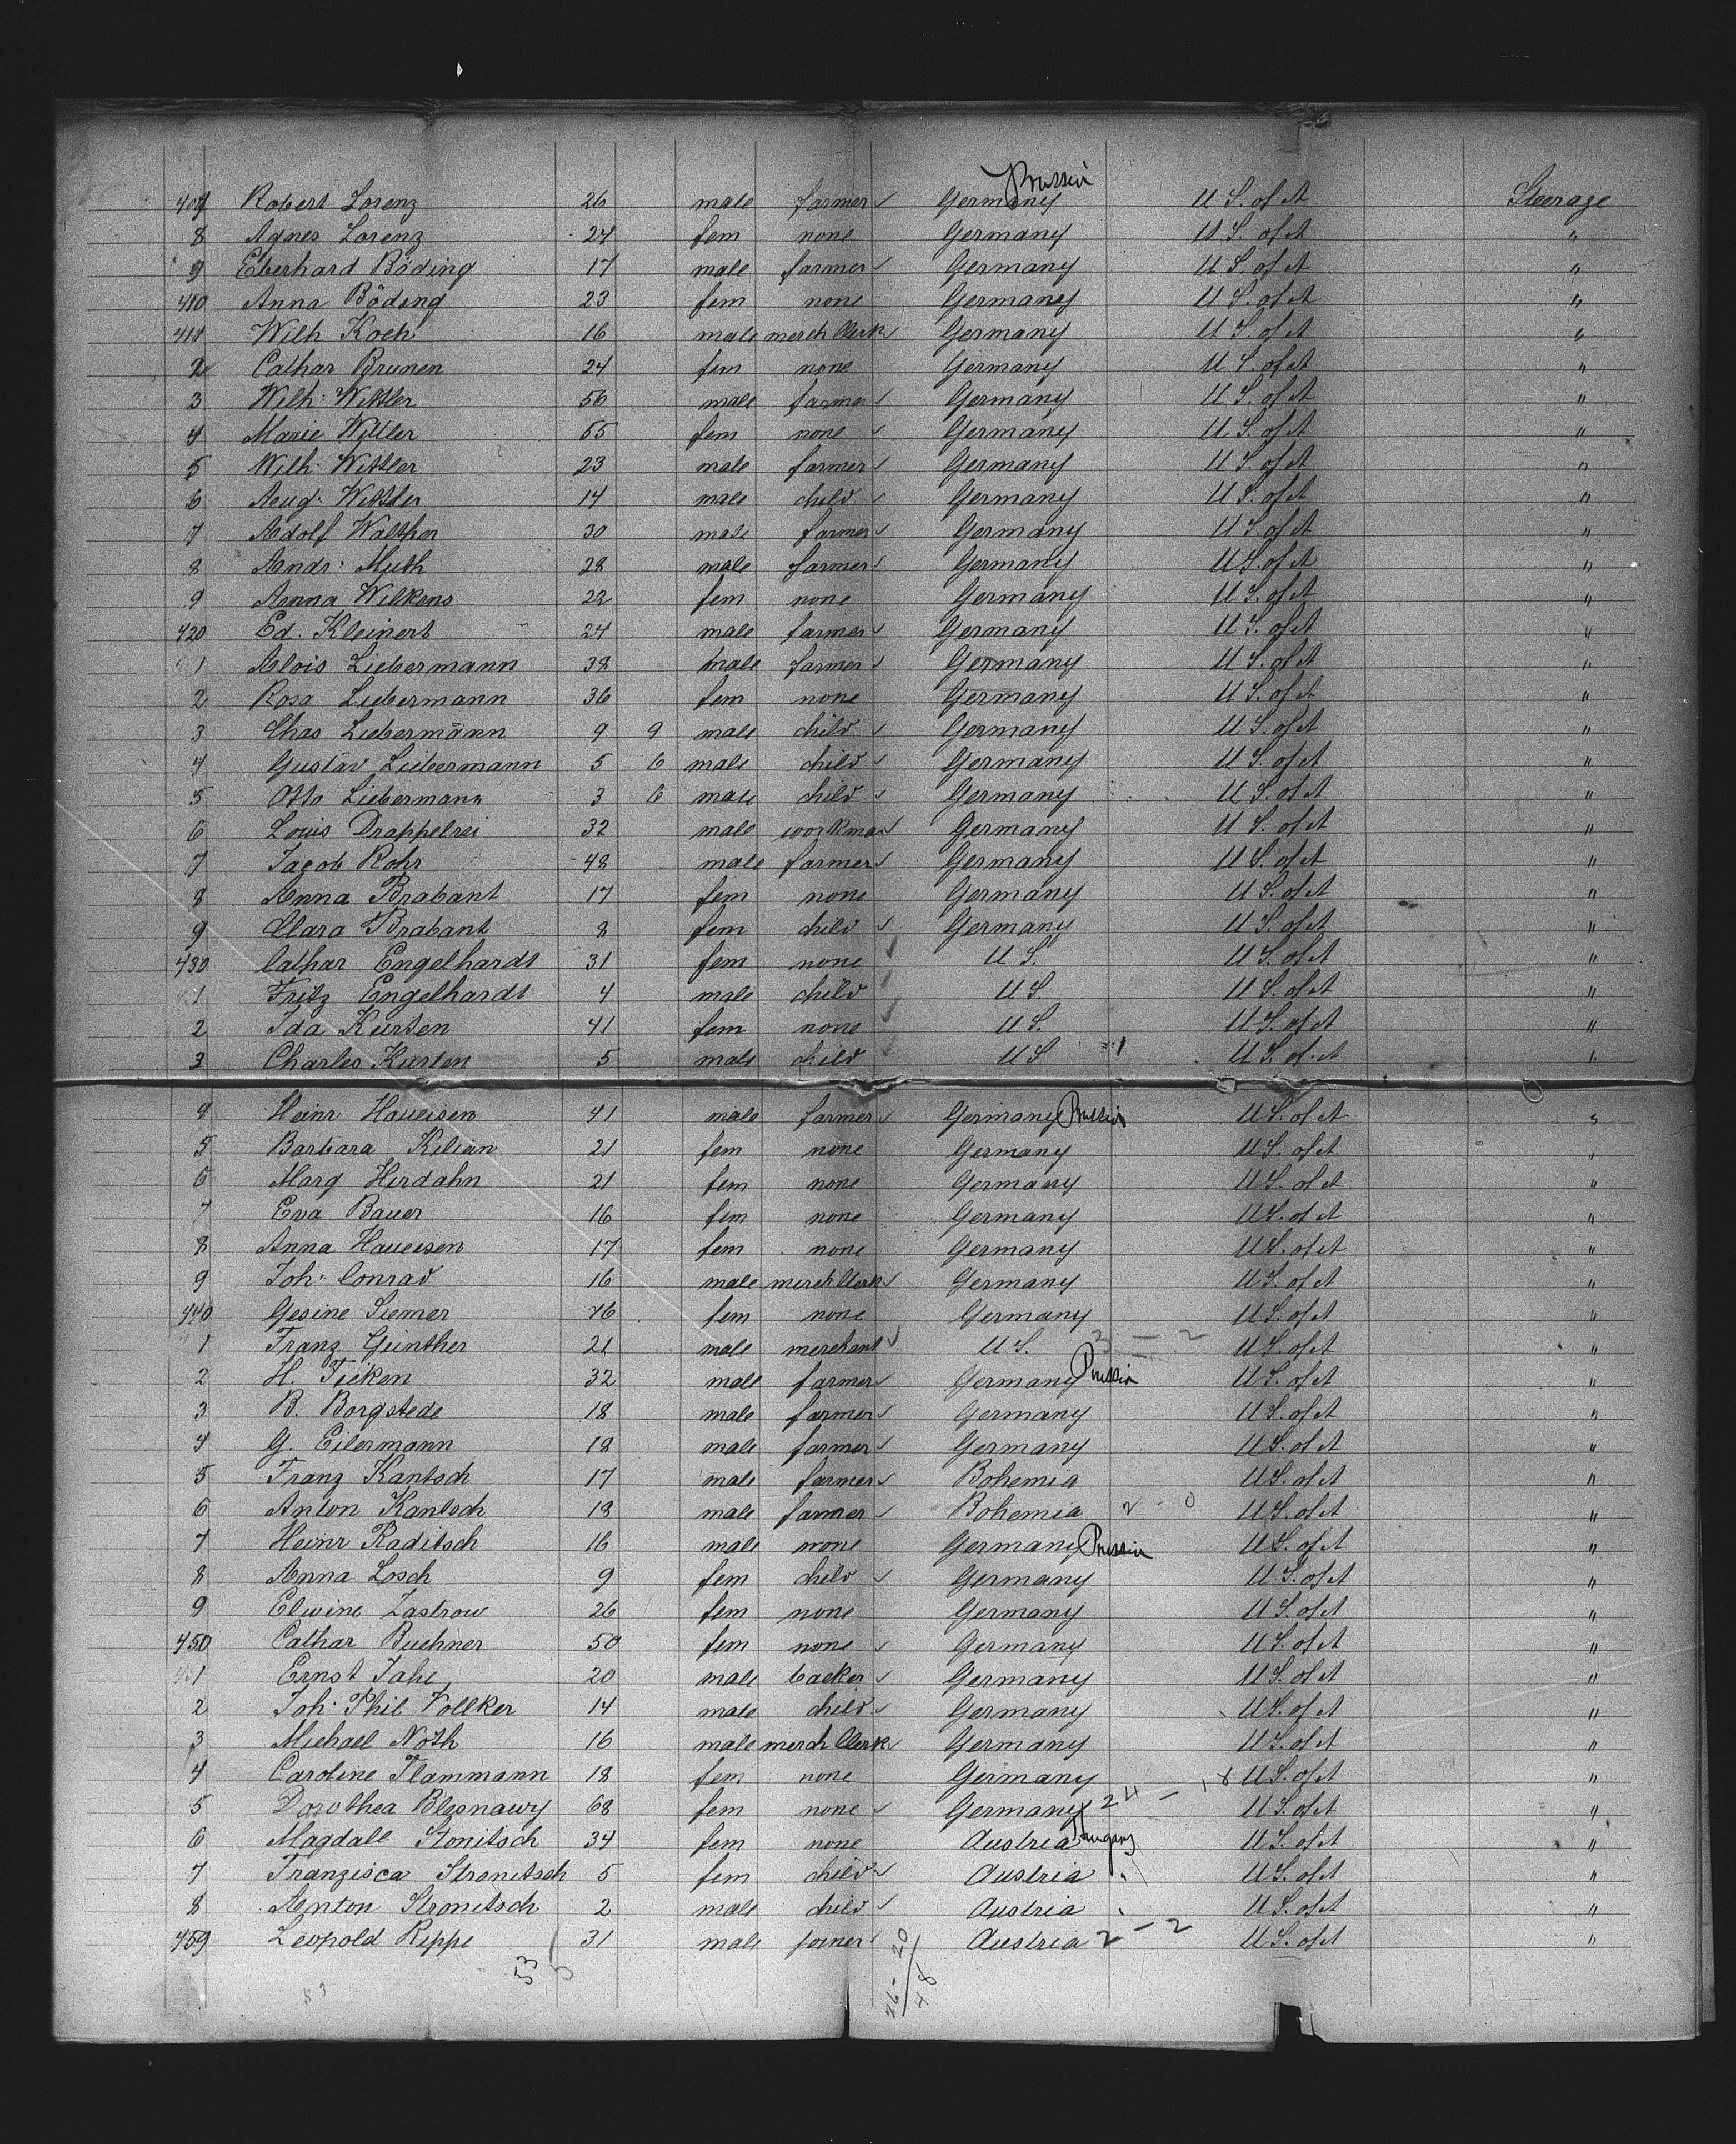 Prussia
407 Robert Lorenz 26 male farmer Germany U S. of A Steerage
8 Agnes Lorenz 24 fem none Germany U S. of A "
9 Eberhard Böding 17 male farmer Germany U S. of A "
410 Anna Böding 23 fem none Germany U S. of A "
411 Wilh Koch 16 male merch Clerk Germany U S. of A "
2 Cathar Brunen 24 fem none Germany U S. of A "
3 Wilh: Wittler 56 male farmer Germany U S. of A "
4 Marie Wittler 55 fem none Germany U S. of A "
5 Wilh: Wittler 23 male farmer Germany U S. of A "
6 Aug: Wittler 14 male child Germany U S. of A "
7 Adolf Walther 30 male farmer Germany U S. of A "
8 Andr: Muth 28 male farmer Germany U S. of A "
9 Anna Wilkens 22 fem none Germany U S. of A "
420 Ed. Kleinert 24 male farmer Germany U S. of A "
1 Alois Liebermann 38 male farmer Germany U S. of A "
2 Rosa Liebermann 36 fem none Germany U S. of A "
3 Chas Liebermann 9 9 male child Germany U S. of A "
4 Gustav Liebermann 5 6 male child Germany U S. of A "
5 Otto Liebermann 3 6 male child Germany U S. of A "
6 Louis 32 male workman Germany U S. of A "
7 Jacob Rohr 48 male farmer Germany U S. of A "
8 Anna Brabant 17 fem none Germany U S. of A "
9 Clara Brabant 8 fem child Germany U S. of A "
430 Cathar Engelhardt 31 fem none U S. U S. of A "
1 Fritz Engelhardt 4 male child U S. U S. of A "
2 Ida Kursten 41 fem none U S. U S. of A "
3 Charles Kursten 5 male child U S U S. of A "
4 Heinr Haueisen 41 male farmer Germany Prussia U S. of A "
5 Barbara Kilian 21 fem none Germany U S. of A "
6 Marg Herdahn 21 fem none Germany U S. of A "
7 Eva Bauer 16 fem none Germany U S. of A "
8 Anna Haueisen 17 fem none Germany U S. of A "
9 Joh: Conrad 16 male merch Clerk Germany U S. of A "
440 Gesine Siemer 16 fem none Germany U S. of A "
1 Franz Günther 21 male merchant U S. 3 - 2 U S. of A "
2 H. Tieken 32 male farmer Germany Prussia U S. of A "
3 B. Borgstede 18 male farmer Germany U S. of A "
4 G. Eilermann 18 male farmer Germany U S. of A "
5 Franz Kantsch 17 male farmer Bohemia U S. of A "
6 Anton Kantsch 18 male farmer Bohemia 2 - 0 U S. of A "
7 Heinr Raditsch 16 male none Germany Prussia U S. of A "
8 Anna Losch 9 fem child Germany U S. of A "
9 Elwine Zastrow 26 fem none Germany U S. of A "
450 Cathar Buchner 50 fem none Germany U S. of A "
1 Ernst Jahl 20 male backer Germany U S. of A "
2 Joh: Phil Vollker 14 male child Germany U S. of A "
3 Michael Noth 16 male merch Clerk Germany U S. of A "
4 Caroline Flammann 18 fem none Germany U S. of A "
5 Dorothea Blesnawy 68 fem none Germany 24 - 18 U S. of A "
6 Magdall Stonitsch 34 fem none Austria Hungary U S. of A "
7 Franzisca Stronitsch 5 fem child Austria " U S. of A "
8 Anton Stronitsch 2 male child Austria " U S. of A "
459 Leopold Rippe 31 male joiner Austria 2 - 2 U S. of A "
53
26 - 20
48
53